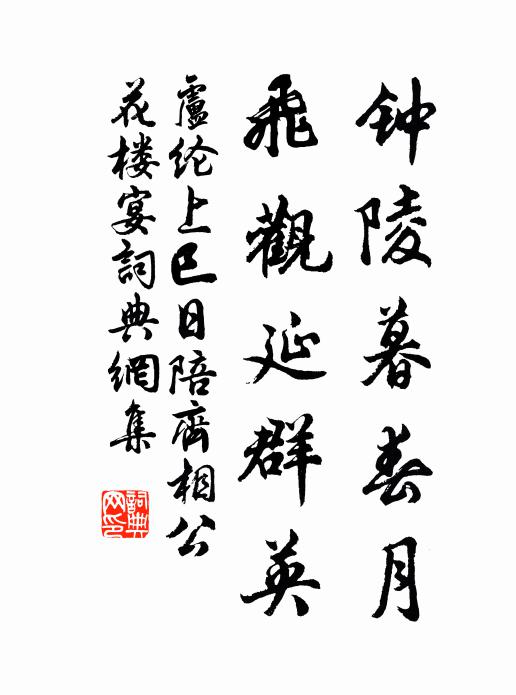 钟陵暮春月
飛觀延群英
盧纶上巳日陪齊相公
花楼宴詞典網集
詞典网印